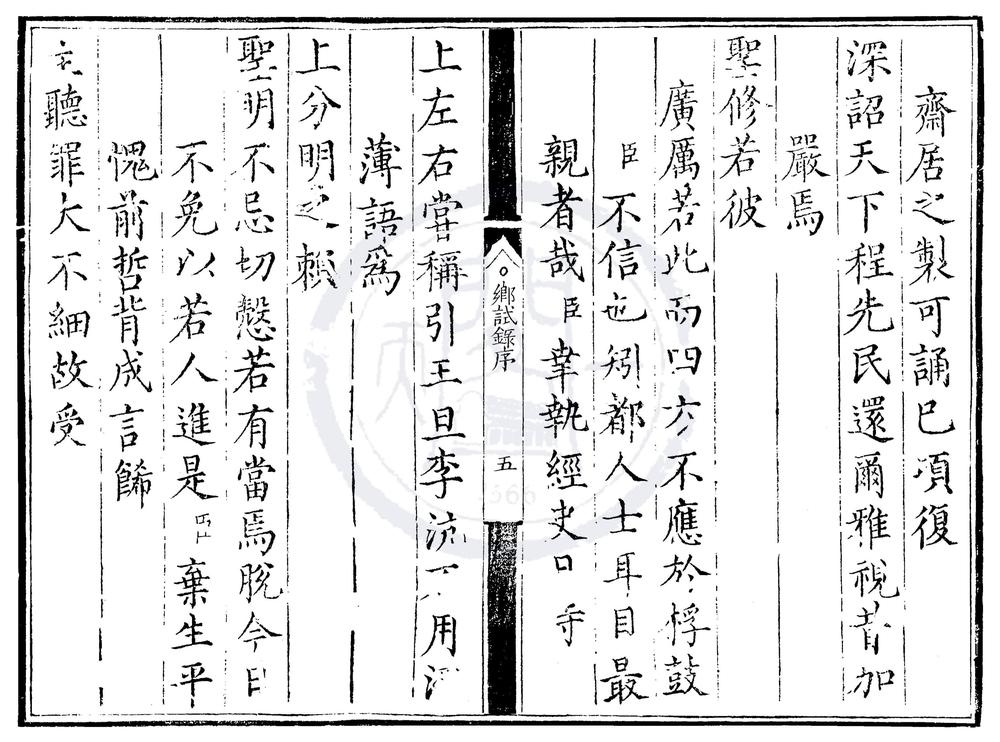 齋居之製可誦已項復
深詔天下程先民還爾雅視昔加
嚴焉
聖修若彼
廣厲若此而四方不應於桴鼓
臣不信也矧都人士耳目最
親者哉臣幸執經史
鄉試錄序
五
上左右嘗稱引王旦李沆不用浮
薄語為
上分明之賴
聖明不忌切愨若有當焉脫今日
不免以若人進是臣棄生平
愧前哲背成言餙
聽罪大不細故受